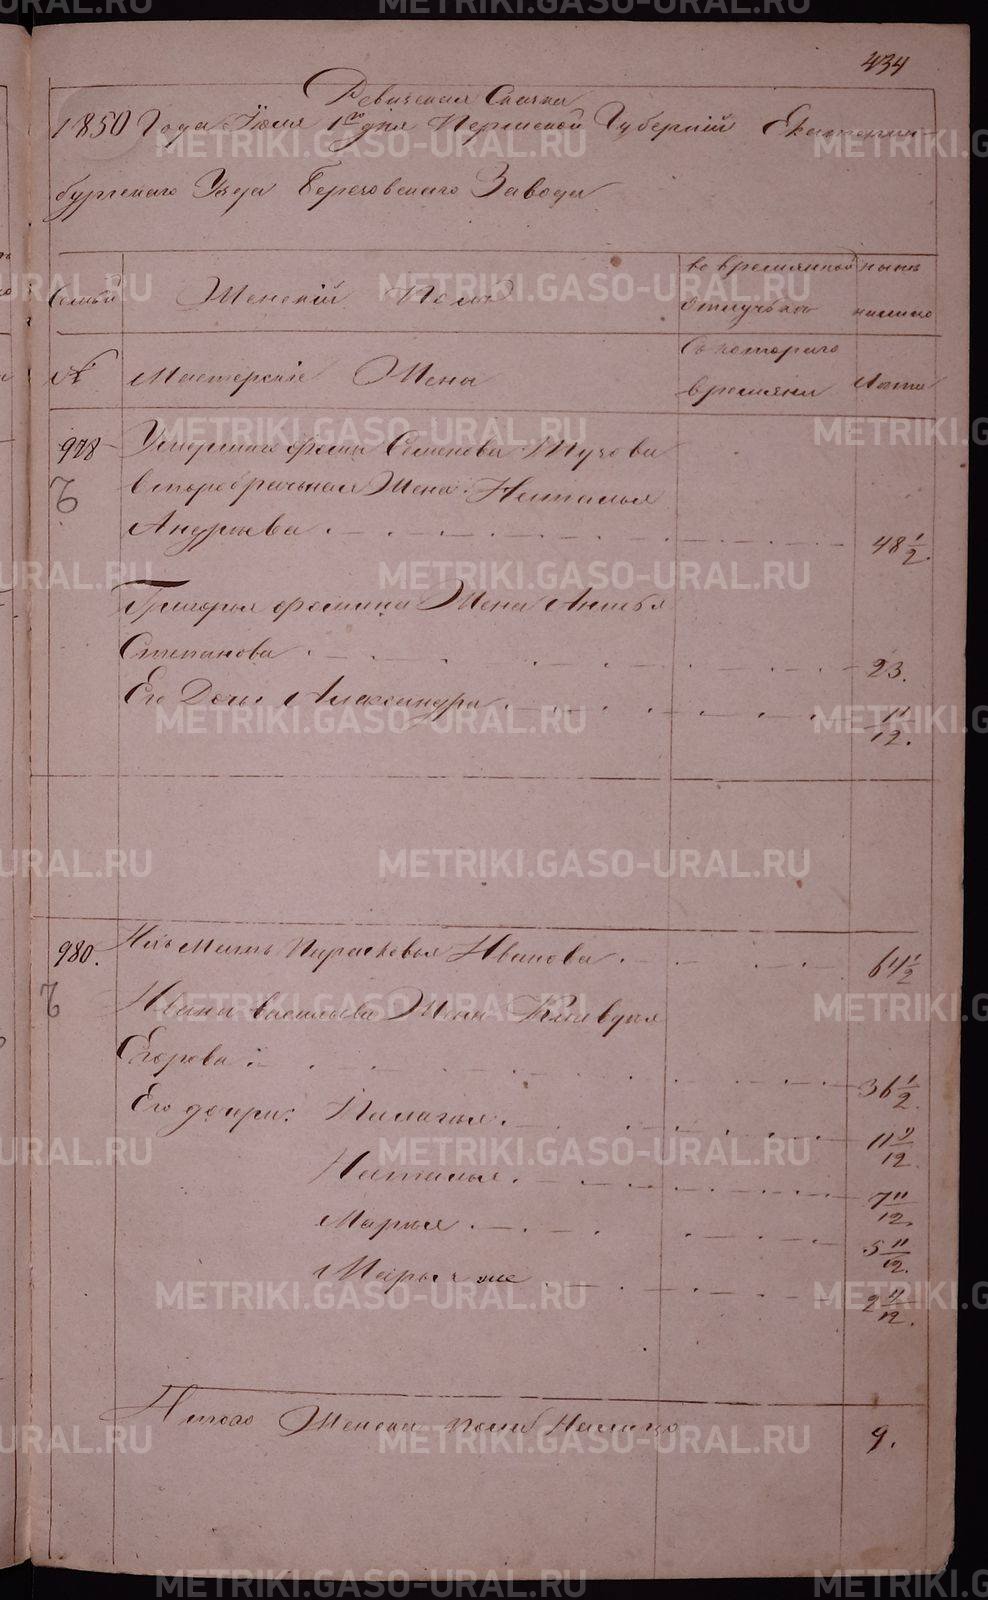 434
Ревизская Сказка
1850 Года Июля 1го дня Пермской Губернiи Екатерин-
бургскаго Уезда Березовскаго Завода
Семьи
Женскiй Полъ
во временной отлучке
ныне налицо
№
Мастерскiе Жены
Съ котораго времяни
Лета
978
Умершаго Фомы Семенова Тузова
второбрачьная Жена Наталья
Андреева
48 1/2.
Григорья Фомина Жена Анисья
Степанова
23.
Его Дочь Александра
11/12.
980.
Ихъ Мать Парасковья Иванова
61 1/2
Ивана Васильева Жена
Егорова
36 1/2.
Его дочери: Палагья
11 9/12
Наталья
7 11/12.
Марья
5 11/12.
Марья же
2 11/12.
Итого Женска пола Налицо
9.
METRIKI.GASO-URAL.RU